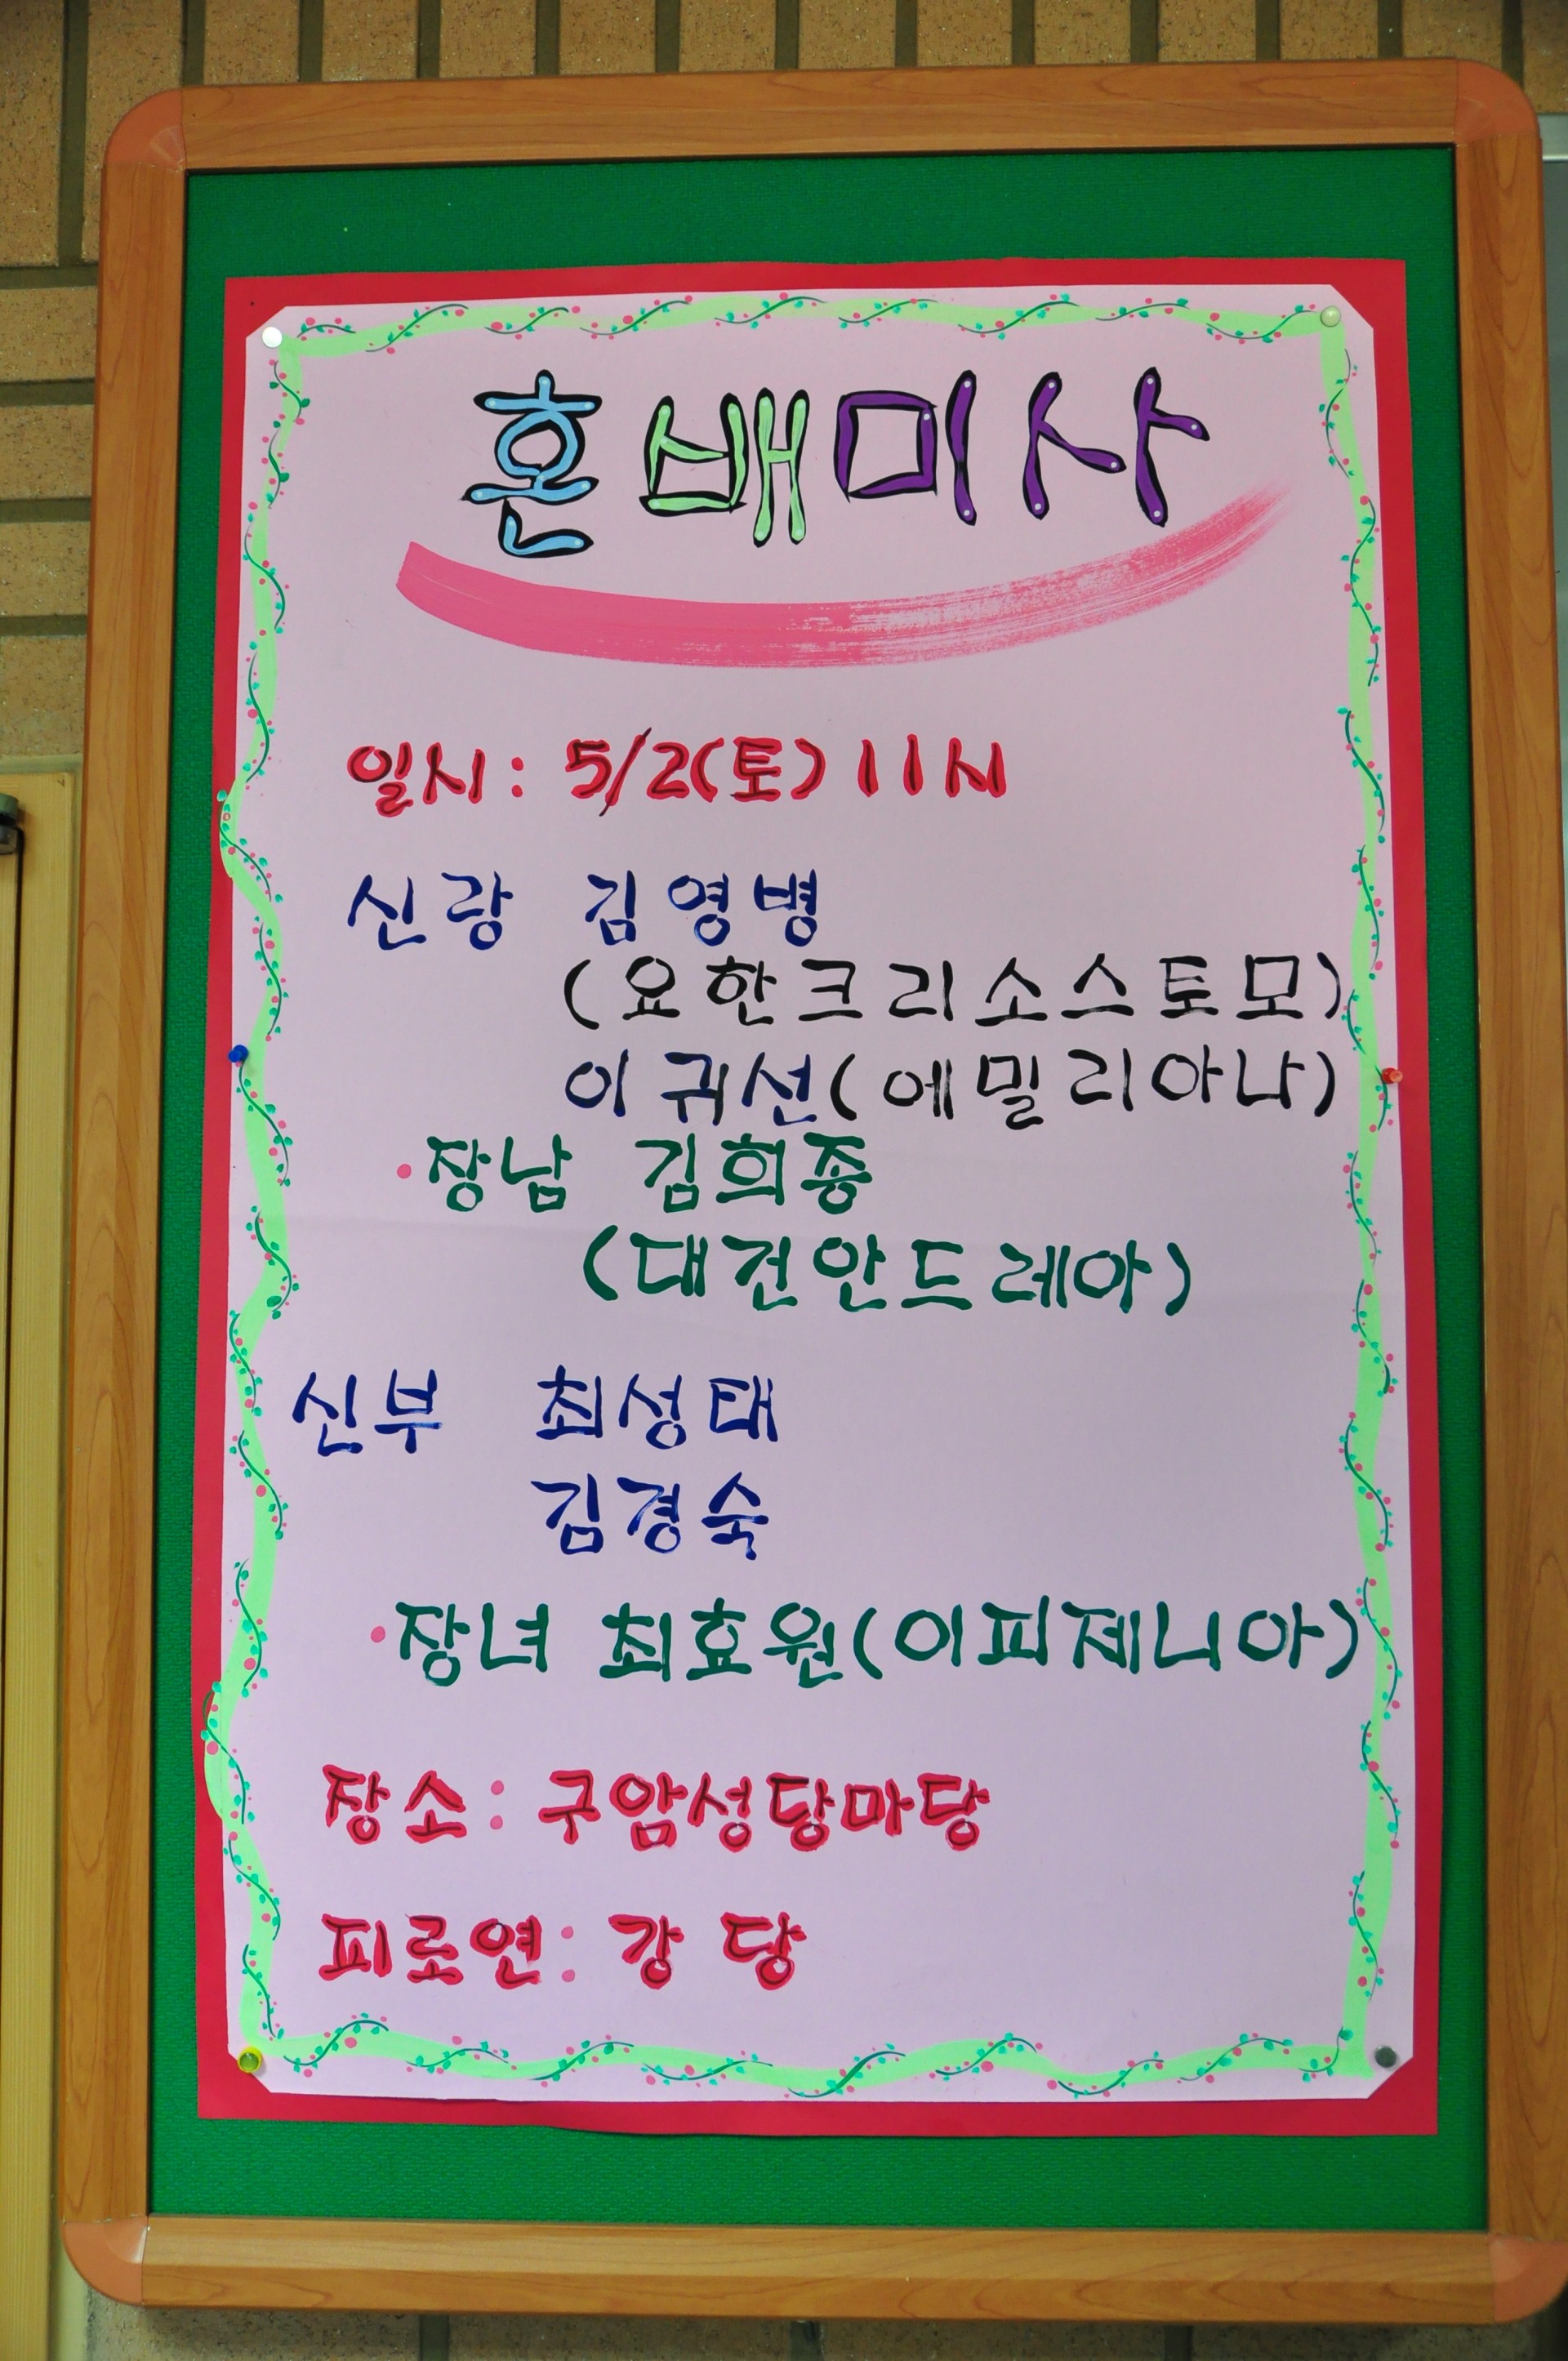 혼배미사
일시: 5/2(토) 11시
신랑 김영병
(요한크리소스토모)
이귀선(에밀리아나)
·장남 김희종
(대건안드레아)
신부 최성태
김경숙
·장녀 최효원(이피제니아)
장소: 구암성당마당
피로연: 강당